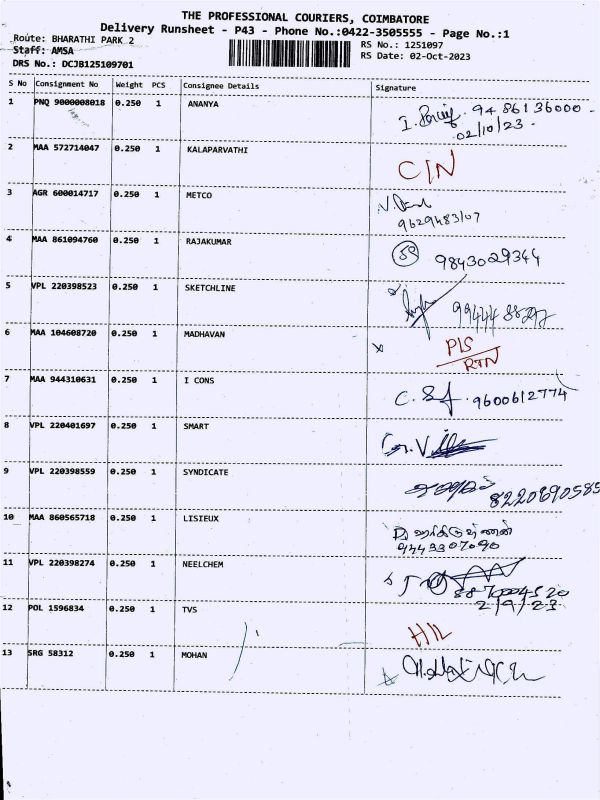 THE PROFESSIONAL COURIERS, COIMBATORE
Delivery Runsheet - P43 - Phone No.:0422-3505555 - Page No.:1
Route: BHARATHI PARK 2
RS No.: 1251097
Staff: AMSA
RS Date: 02-Oct-2023
DRS No.: DCJB125109701
S No Consignment No Weight PCS Consignee Details Signature
1 PNQ 9000008018 0.250 1 ANANYA 94 86136000
02/10/23
2 MAA 572714047 0.250 1 KALAPARVATHI C/N
3 AGR 600014717 0.250 1 METCO
9629483107
4 MAA 861094760 0.250 1 RAJAKUMAR 9843029344
5 VPL 220398523 0.250 1 SKETCHLINE
6 MAA 104608720 0.250 1 MADHAVAN P/S
RTN
7 MAA 944310631 0.250 1 I CONS 9600612774
8 VPL 220401697 0.250 1 SMART
9 VPL 220398559 0.250 1 SYNDICATE 8220690585
10 MAA 860565718 0.250 1 LISIEUX
9443307090
11 VPL 220398274 0.250 1 NEELCHEM
2/9/23
12 POL 1596834 0.250 1 TVS H/L
13 SRG 58312 0.250 1 MOHAN